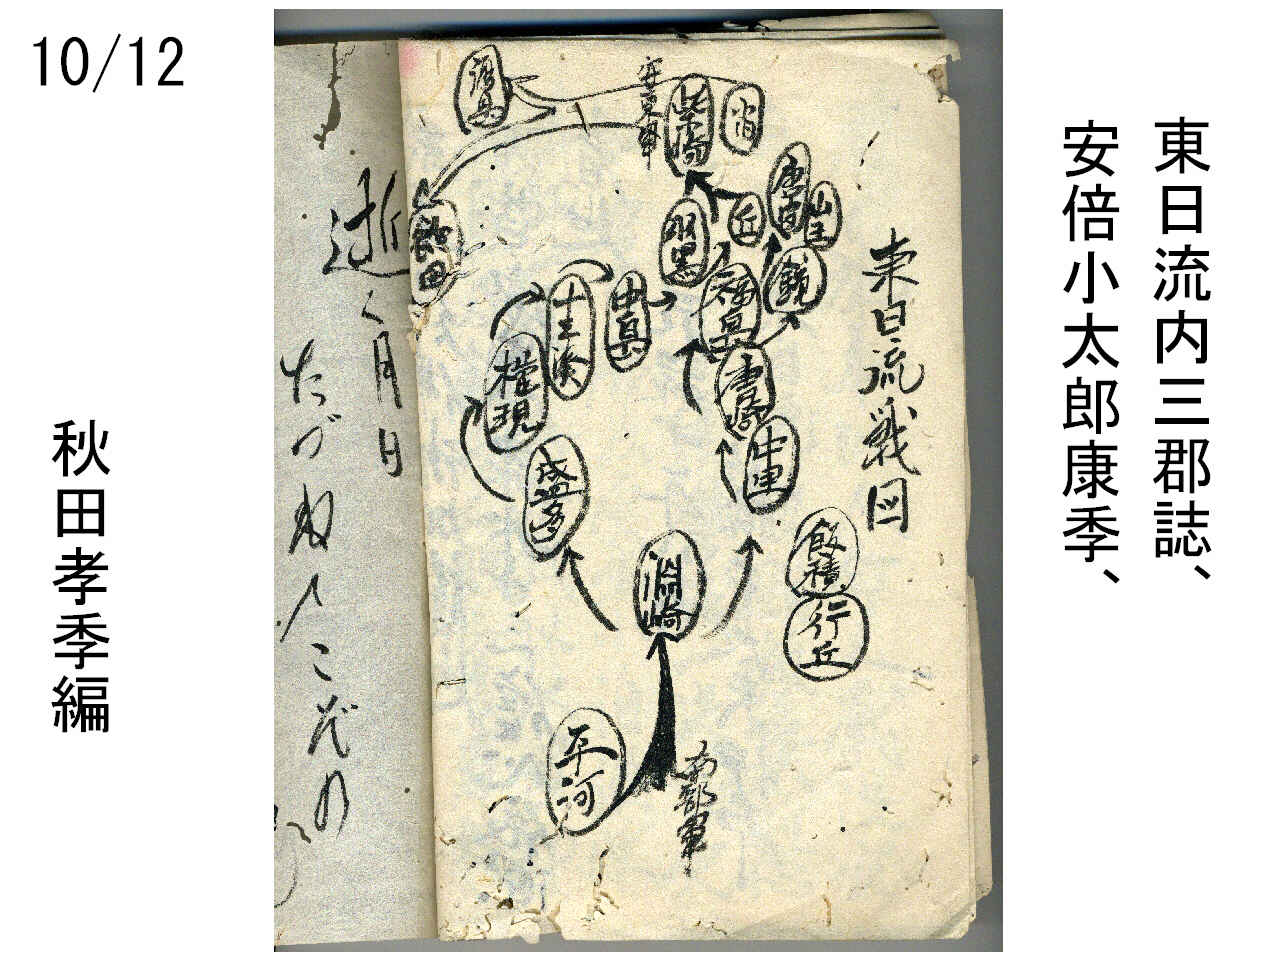 10/12
東日流内三郡誌、
安倍小太郎康季、
秋田孝季編
東日流戦図
安東軍
柴崎
唐皇
山王
丘
羽黒
鏡
福島
中島
十三湊
権現
飯田
盛多
中里
渕崎
飯積
行丘
平河
南部軍
逝く月日
たづぬ人こぞの